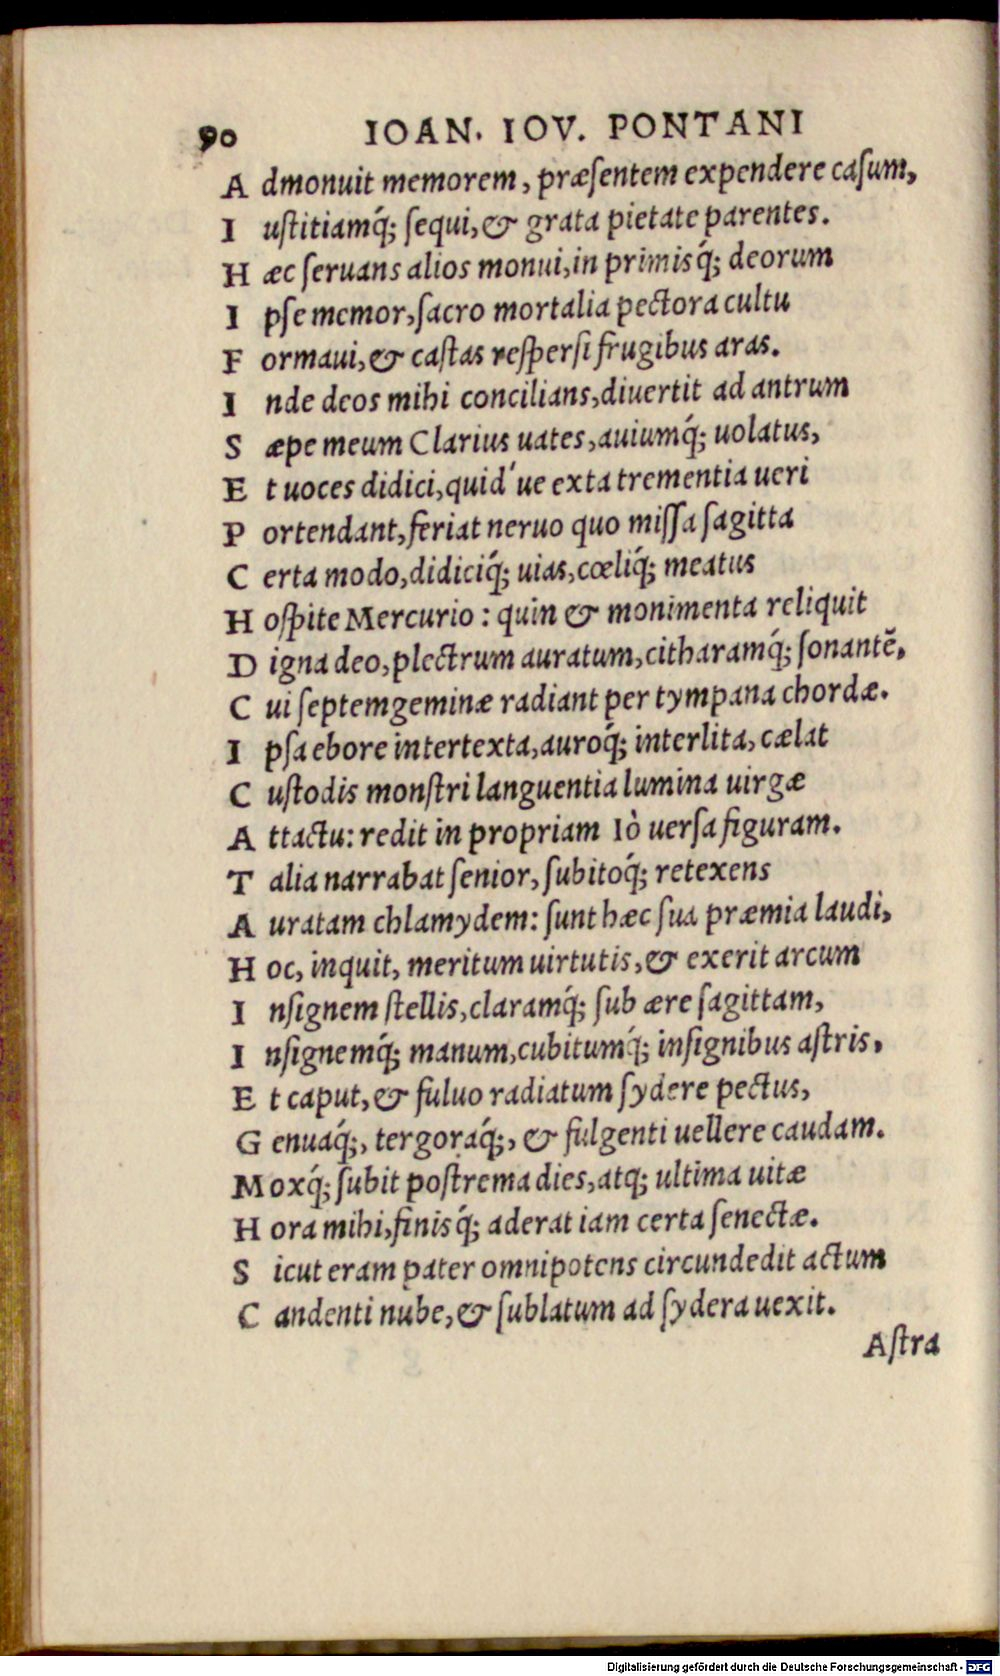 90 IOAN. IOV. PONTANI
A dmonuit memorem, præſentem expendere caſum,
I uſtitiamq́; ſequi, & grata pietate parentes.
H æc ſeruans alios monui, in primisq́; deorum
I pſe memor, ſacro mortalia pectora cultu
F ormaui, & caſtas reſperſi frugibus aras.
I nde deos mihi concilians, diuertit ad antrum
S æpe meum Clarius uates, auiumq́; uolatus,
E t uoces didici, quid´ue exta trementia ueri
P ortendant, feriat neruo quo miſſa ſagitta
C erta modo, didiciq́; uias, cœliq́; meatus
H oſpite Mercurio: quin & monimenta reliquit
D igna deo, plectrum auratum, citharamq́; ſonantẽ,
C ui ſeptemgeminæ radiant per tympana chordæ.
I pſa ebore intertexta, auroq́; interlita, cælat
C uſtodis monſtri languentia lumina uirgæ
A ttactu: redit in propriam Iò uerſa figuram.
T alia narrabat ſenior, ſubitoq́; retexens
A uratam chlamydem: ſunt hæc ſua præmia laudi,
H oc, inquit, meritum uirtutis, & exerit arcum
I nſignem ſtellis, claramq́; ſub ære ſagittam,
I nſignemq́; manum, cubitumq́; inſignibus aſtris,
E t caput, & fuluo radiatum ſydere pectus,
G enuaq́;, tergoraq́;, & fulgenti uellere caudam.
M oxq́; ſubit poſtrema dies, atq; ultima uitæ
H ora mihi, finisq́; aderat iam certa ſenectæ.
S icut eram pater omnipotens circundedit actum
C andenti nube, & ſublatum ad ſydera uexit.
Aſtra
Digitalisierung gefördert durch die Deutsche Forschungsgemeinschaft - DFG